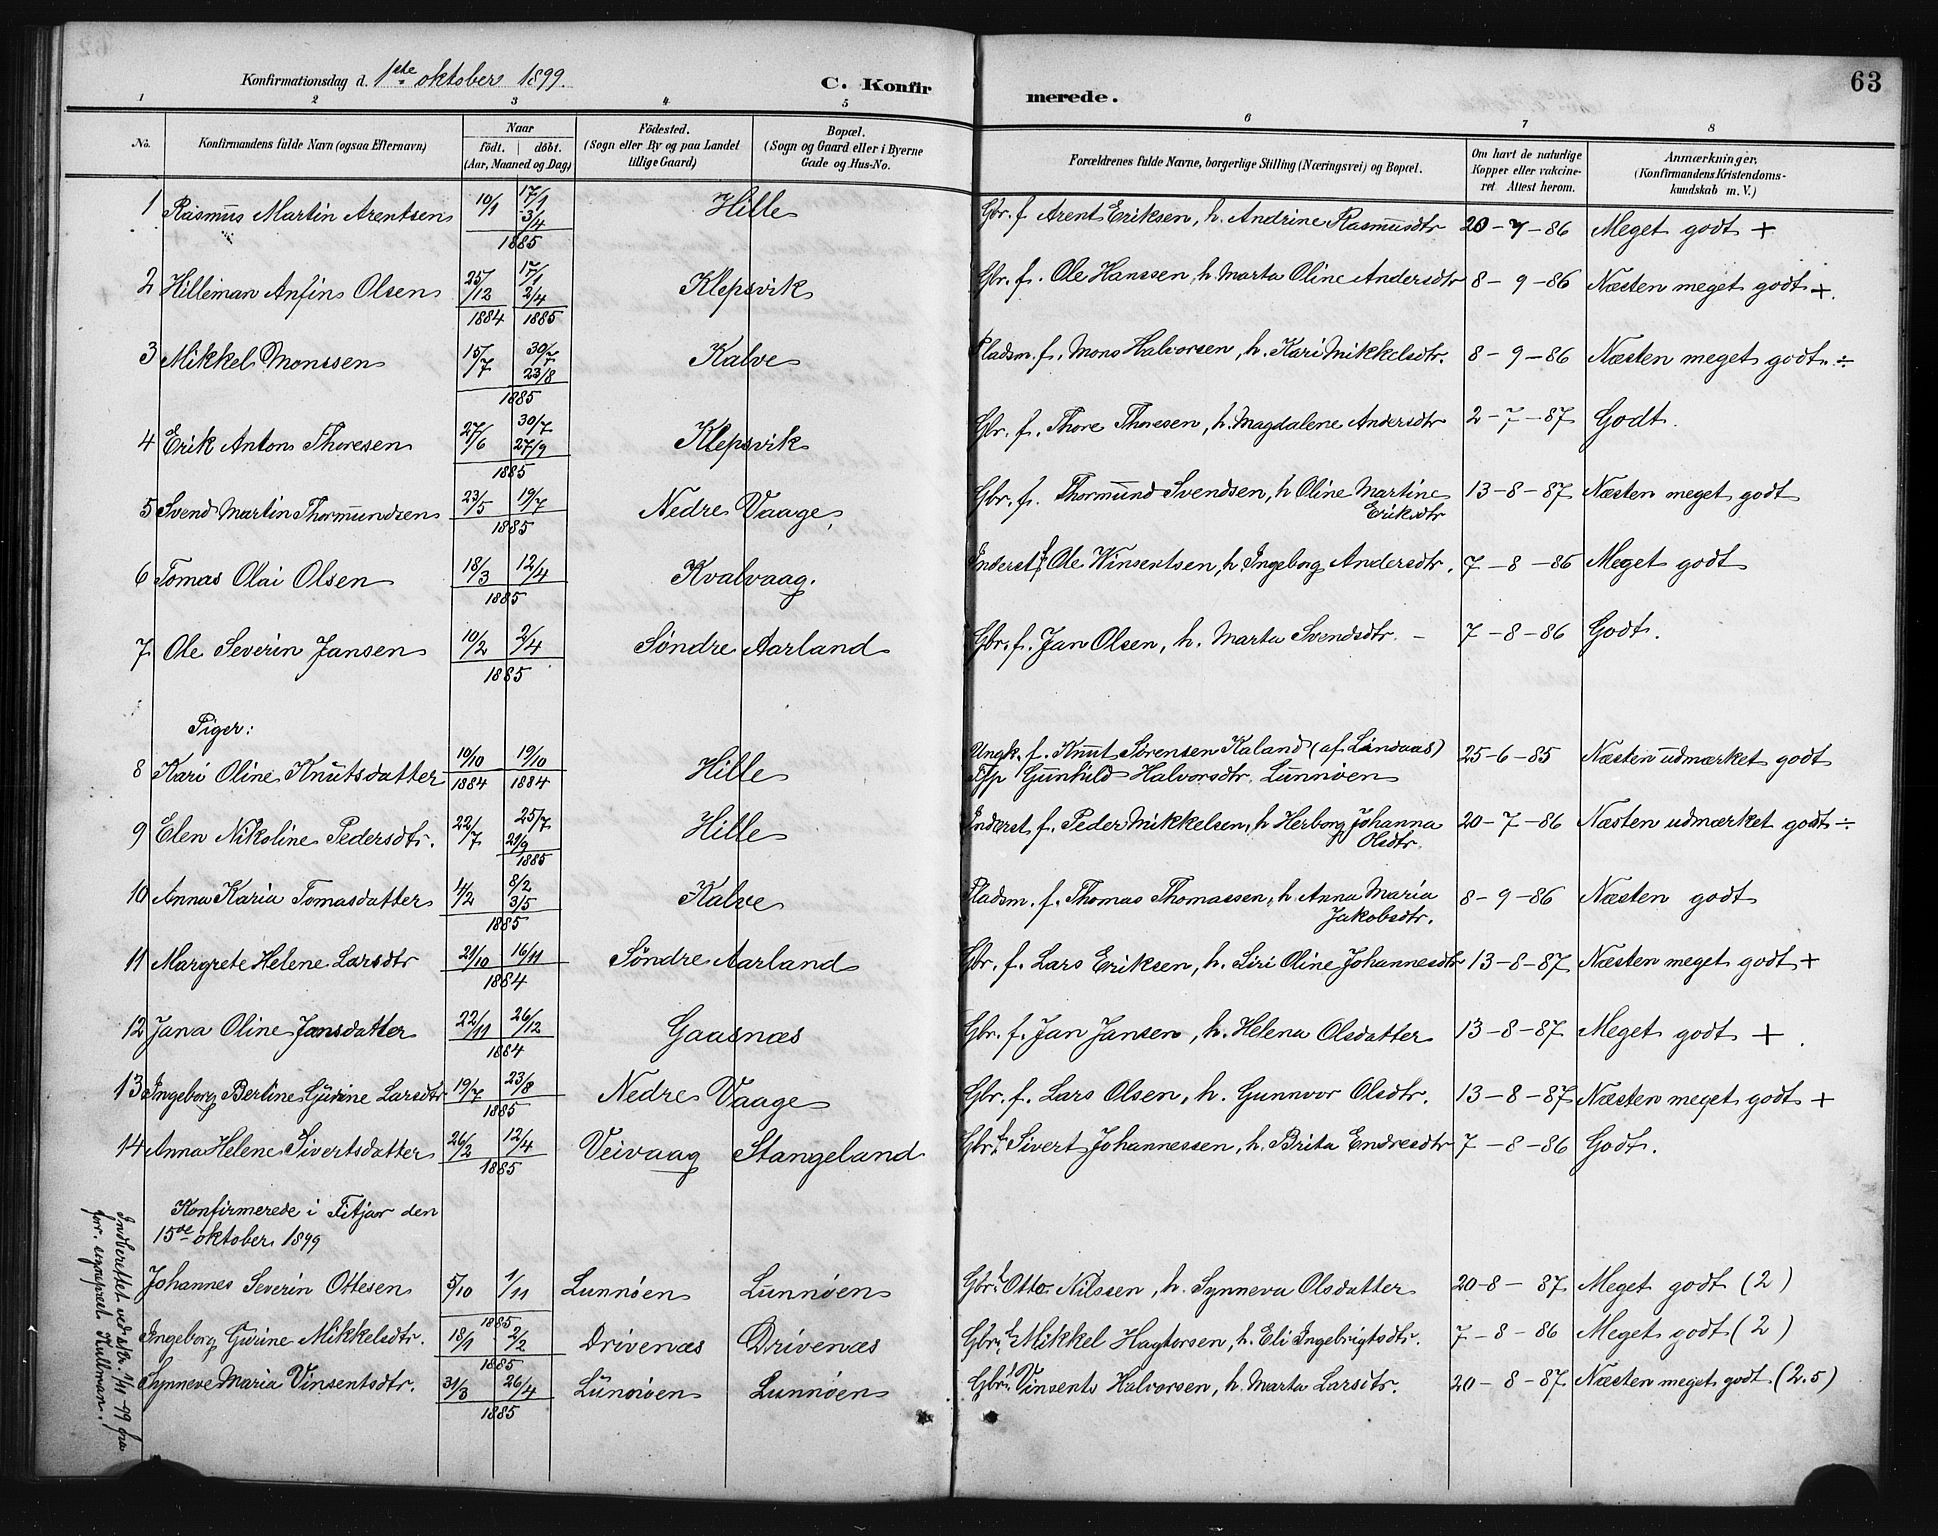 63
Konfirmationsdag d. 1ste oktober 1899.
C. Konfirmerede.
1 2 3 4 5 6 7 8
No. Konfirmandens fulde Navn (ogsaa Efternavn) Naar födt. döbt. (Aar, Maaned og Dag) Födested. (Sogn eller By og paa Landet tillige Gaard) Bopæl. (Sogn og Gaard eller i Byerne Gade og Hus-No. Forældrenes fulde Navne, borgerlige Stilling (Næringsvei) og Bopæl. Om havt de naturlige Kopper eller vakcineret. Attest herom. Anmærkninger. (Konfirmandens Kristendomskundskab m. V.)
1 Rasmus Martin Arentsen 10/1 17/1 3/4 1885 Hille Gbr. f. Arent Eriksen, h. Andrine Rasmusdtr 20-7-86 Meget godt +
2 Hilleman Anfin Olsen 25/12 1884 17/1 2/4 1885 Klepsvik Gbr. f. Ole Hanssen, h. Marta Oline Andersdtr 8-9-86 Næsten meget godt +.
3 Mikkel Monssen 15/7 30/7 23/8 1885 Kalve Pladsm. f. Mons Halvorsen, h. Kari Mikkelsdtr. 8-9-86 Næsten meget godt. ÷
4 Erik Anton Thoresen 27/6 30/7 27/9 1885 Klepsvik Gbr. f. Thore Thoresen, h. Magdalene Andersdtr 2-7-87 Godt.
5 Svend Martin Thormundsen 23/5 19/7 1885 Nedre Vaage, Gbr. f. Thormund Svendsen, h Oline Martine Eriksdtr 13-8-87 Næsten meget godt
6 Tomas Olai Olsen 18/3 12/4 1885 Kvalvaag. Inderst f. Ole Winsentsen, h Ingeborg Andersdtr. 7-8-86 Meget godt
7 Ole Severin Jansen 10/2 2/4 1885 Søndre Aarland Gbr. f. Jan Olsen, h. Marta Svendsdtr. - 7-8-86 Godt.
Piger:
8 Kari Oline Knutsdatter 10/10 1884 19/10 1884 Hille Ungk. f. Knut Sørensen Kaland (af Lindaas) Gunhild Halvorsdtr. Lunnøen 25-6-85 Næsten udmærket godt
9 Elen Nikoline Pedersdtr. 22/7 25/7 21/9 1885 Hille Inderst f. Peder Mikkelsen, h Herborg Johanna Olsdtr. 20-7-86 Næsten udmærket godt ÷
10 Anna Karia Tomasdatter 4/2 8/2 3/5 1885 Kalve Pladsm. f. Thomas Thomassen, h. Anna Maria Jakobsdtr. 8-9-86 Næsten godt
11 Margrete Helene Larsdtr 21/10 16/11 1884 Søndre Aarland Gbr. f. Lars Eriksen, h. Siri Oline Johannesdtr 13-8-87 Næsten meget godt +
12 Jana Oline Jansdatter 22/11 26/12 1884 Gaasnæs Gbr. f. Jan Jansen, h. Helena Olsdatter 13-8-87 Meget godt +
13 Ingeborg Bertine Gurine Larsdtr 19/7 23/8 1885 Nedre Vaage Gbr. f. Lars Olsen, h. Gunnvor Olsdtr. 13-8-87 Næsten meget godt +
14 Anna Helene Sivertsdatter 26/2 12/4 1885 Veivaag Stangeland Gbr. f. Sivert Johannessen, h. Brita Endresdtr 7-8-86 Godt.
Konfirmerede i Fitjar den
15de oktober 1899
Johannes Severin Ottesen 5/10 1/11 1885 Lunnøen Lunnøen Gbr. f. Otto Nilssen, h. Synneva Olsdatter 20-8-87 Meget godt (2)
Ingeborg Gurine Mikkelsdtr. 18/1 2/2 1885 Drivenæs Drivenæs Gbr. f. Mikkel Hagtorsen, h. Eli Ingebrigtsdtr. 7-8-86 Meget godt (2)
Synneve Maria Vinsentsdtr. 31/3 26/4 1885 Lunnøen Lunnøen Gbr. f. Vinsents Halvorsen, h. Marta Larsdtr. 20-8-87 Næsten meget godt (2.5)
Indberettet ved skr. 1/11-99 fra
for. sognepræst Kullman.